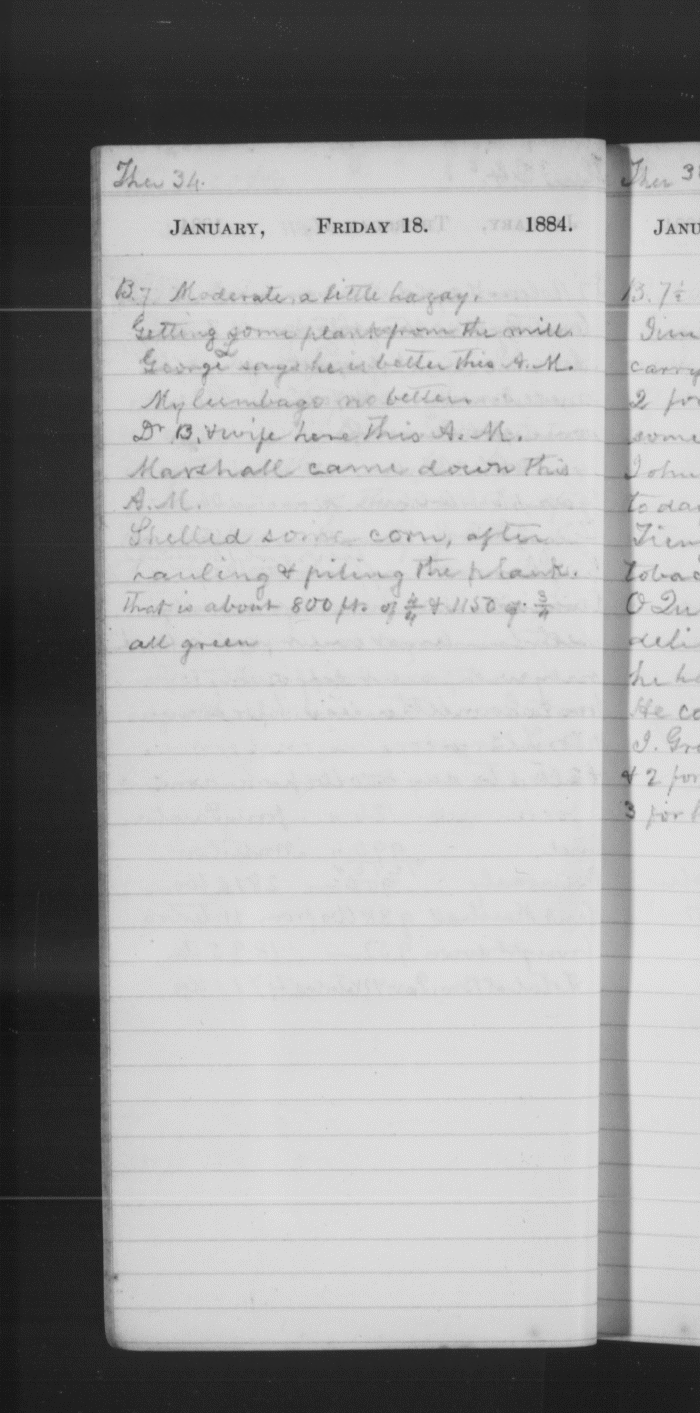 Ther 34.
JANUARY, FRIDAY 18. 1884.
B. 7 Moderate, a little hazay.
Getting some plank from the mill.
George says he is better this A.M.
My lumbago no better.
Dr B. & wife here this A.M.
Marshall came down this
A.M.
Shelled some corn, after
hauling & piling the plank.
That is about 800 ft. of 4/4 & 1150 of 3/4
all green
Ther 3
JANU
B. 7 1/2
Jim
carry
2 for
some
John
to da
tobac
deli
he ha
He co
J. Gr
& 2 for
3 for